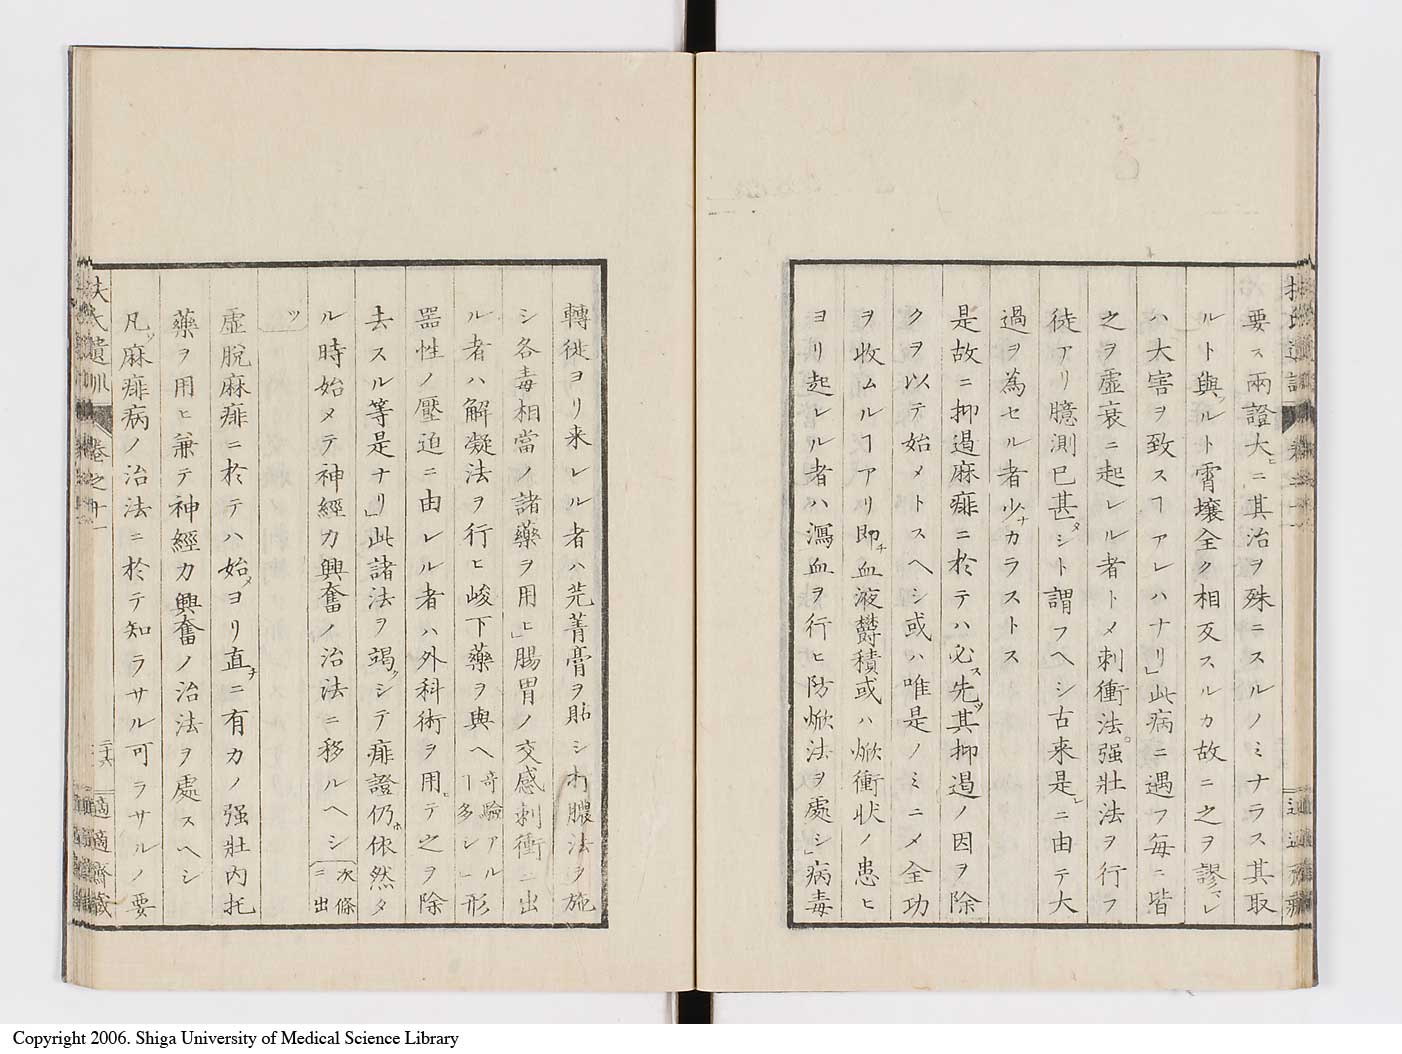 要ス兩證大ヒニ其治ヲ殊ニスルノミナラス其取
ルト與ッルト霄壤全ク相反スルカ故ニ之ヲ謬マレ
ハ大害ヲ致スヿアレハナリ」此病ニ遇フ毎ニ皆
之ヲ虛衰ニ起レル者トメ刺衝法。强壯法ヲ行フ
徒アリ臆測已甚タシト謂フヘシ古来是レニ由テ大
過ヲ為セル者少ナカラストス
是故ニ抑遏麻痱ニ於テハ必ス先ッ其抑遏ノ因ヲ除
クヲ以テ始メトスヘシ或ハ唯是ノミニメ全功
ヲ收ムルヿアリ即チ血液鬱積或ハ焮衝状ノ患ヒ
ヨリ起レル者ハ瀉血ヲ行ヒ防焮法ヲ處シ」病毒
轉徙ヨリ来レル者ハ芫菁膏ヲ貼シ打膿法ヲ施
シ各毒相當ノ諸藥ヲ用ヒ」腸胃ノ交感刺衝ニ出
ル者ハ解凝法ヲ行ヒ峻下藥ヲ與ヘ奇驗アルヿ多シ」形
器性ノ壓迫ニ由レル者ハ外科術ヲ用ヒテ之ヲ除
去スル等是ナリ」此諸法ヲ竭ッシテ痱證仍ホ依然タ
ル時始メテ神經力興奮ノ治法ニ移ルヘシ次條ニ出
ッ
虛脫麻痱ニ於テハ始メヨリ直チニ有力ノ强壯內托
藥ヲ用ヒ兼テ神經力興奮ノ治法ヲ處スヘシ
凡ソ麻痱病ノ治法ニ於テ知ラサル可ラサルノ要
扶氏遺訓
卷之十一
二十六
適適齋藏
Copyright 2006. Shiga University of Medical Science Library